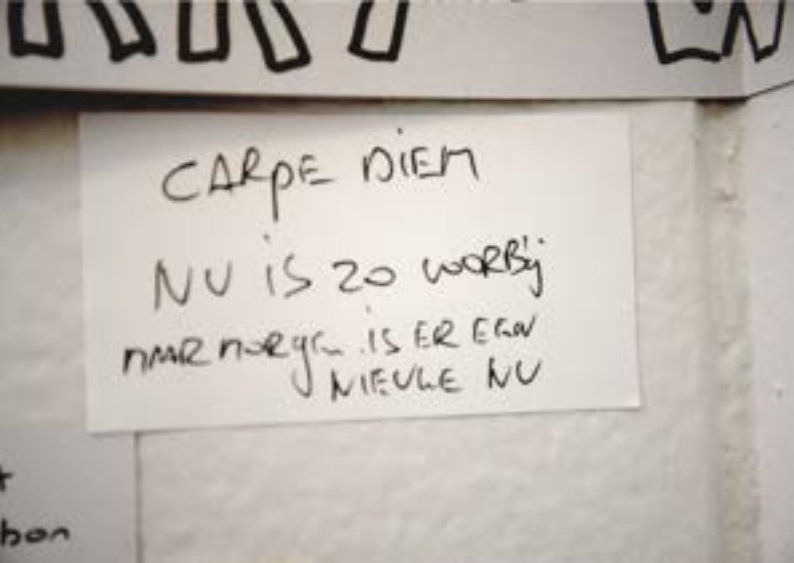 CARPE DIEM
NU IS ZO VOORBIJ
MAAR MORGEN IS ER EEN
NIEUWE NU
bon